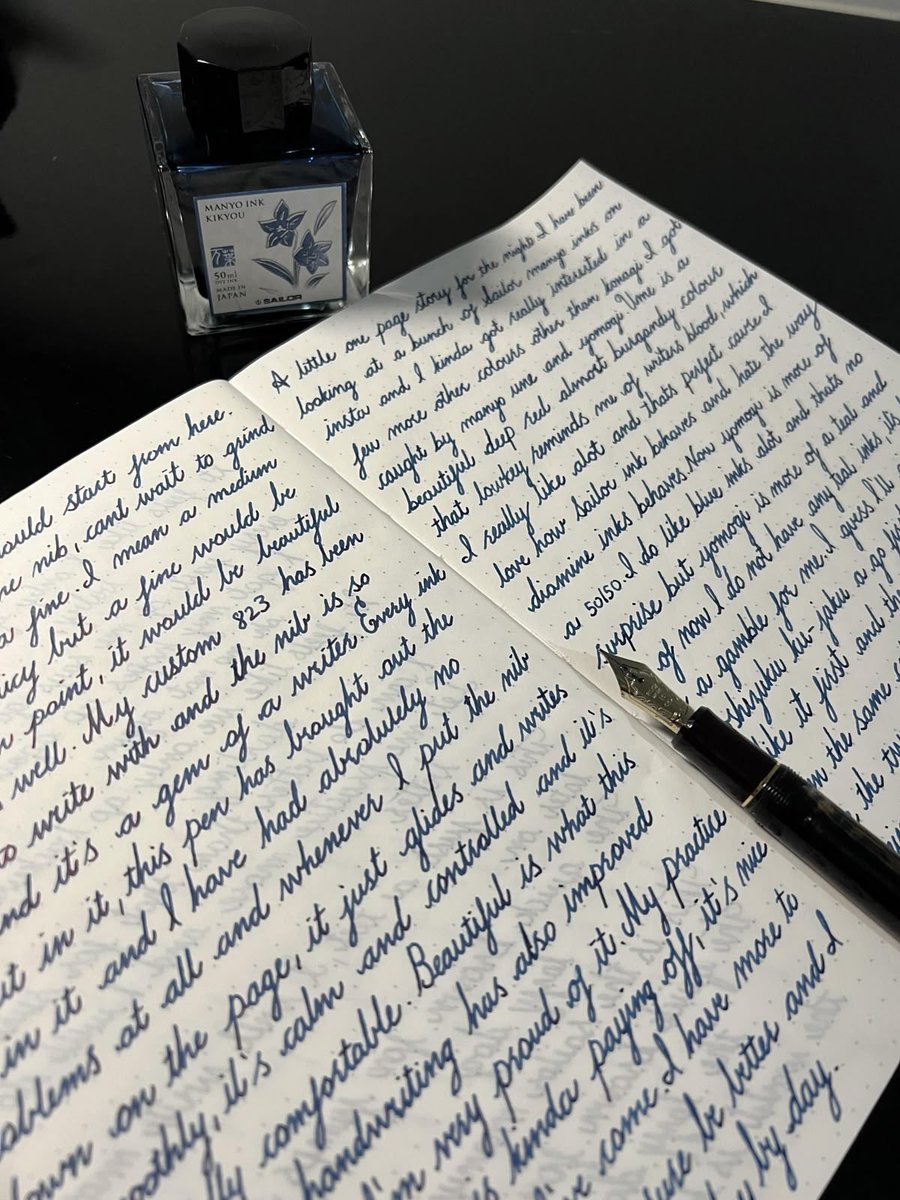 MANYO INK
KIKYOU
万葉
50ml
DYE INK
MADE IN
JAPAN
SAILOR
ould start from here.
ne nib, cant wait to grind
a fine. I mean a medium
uicy but a fine would be
n point, it would be beautiful
well. My custom 823 has been
to write with and the nib is so
and it's a gem of a writer. Every ink
ut in it, this pen has brought out the
in it and I have had absolutely no
oblems at all and whenever I put the nib
down on the page, it just glides and writes
oothly, it's calm and controlled and it's
lly comfortable. Beautiful is what this
handwriting has also improved
I'm very proud of it. My practice
is kinda paying off, it's nice
've come. I have more to
use be better and I
by day.
A little one page story for the night. I have been
looking at a bunch of Sailor manyo inks on
insta and I kinda got really interested in a
few more other colours other than konagi. I got
caught by manyo ume and yomogi. Ume is a
beautiful deep red almost burgandy colour
that lowkey reminds me of writers blood, which
I really like alot and thats perfect cause I
love how sailor ink behaves and hate the way
diamine inks behaves. Now yomogi is more of
a 50/50. I do like blue inks alot and thats no
surprise but yomogi is more of a teal and
of now I do not have any teal inks, it's
a gamble for me. I guess I'll
shizuku ku-jaku a go fir
like it first and the
in the same
the tw